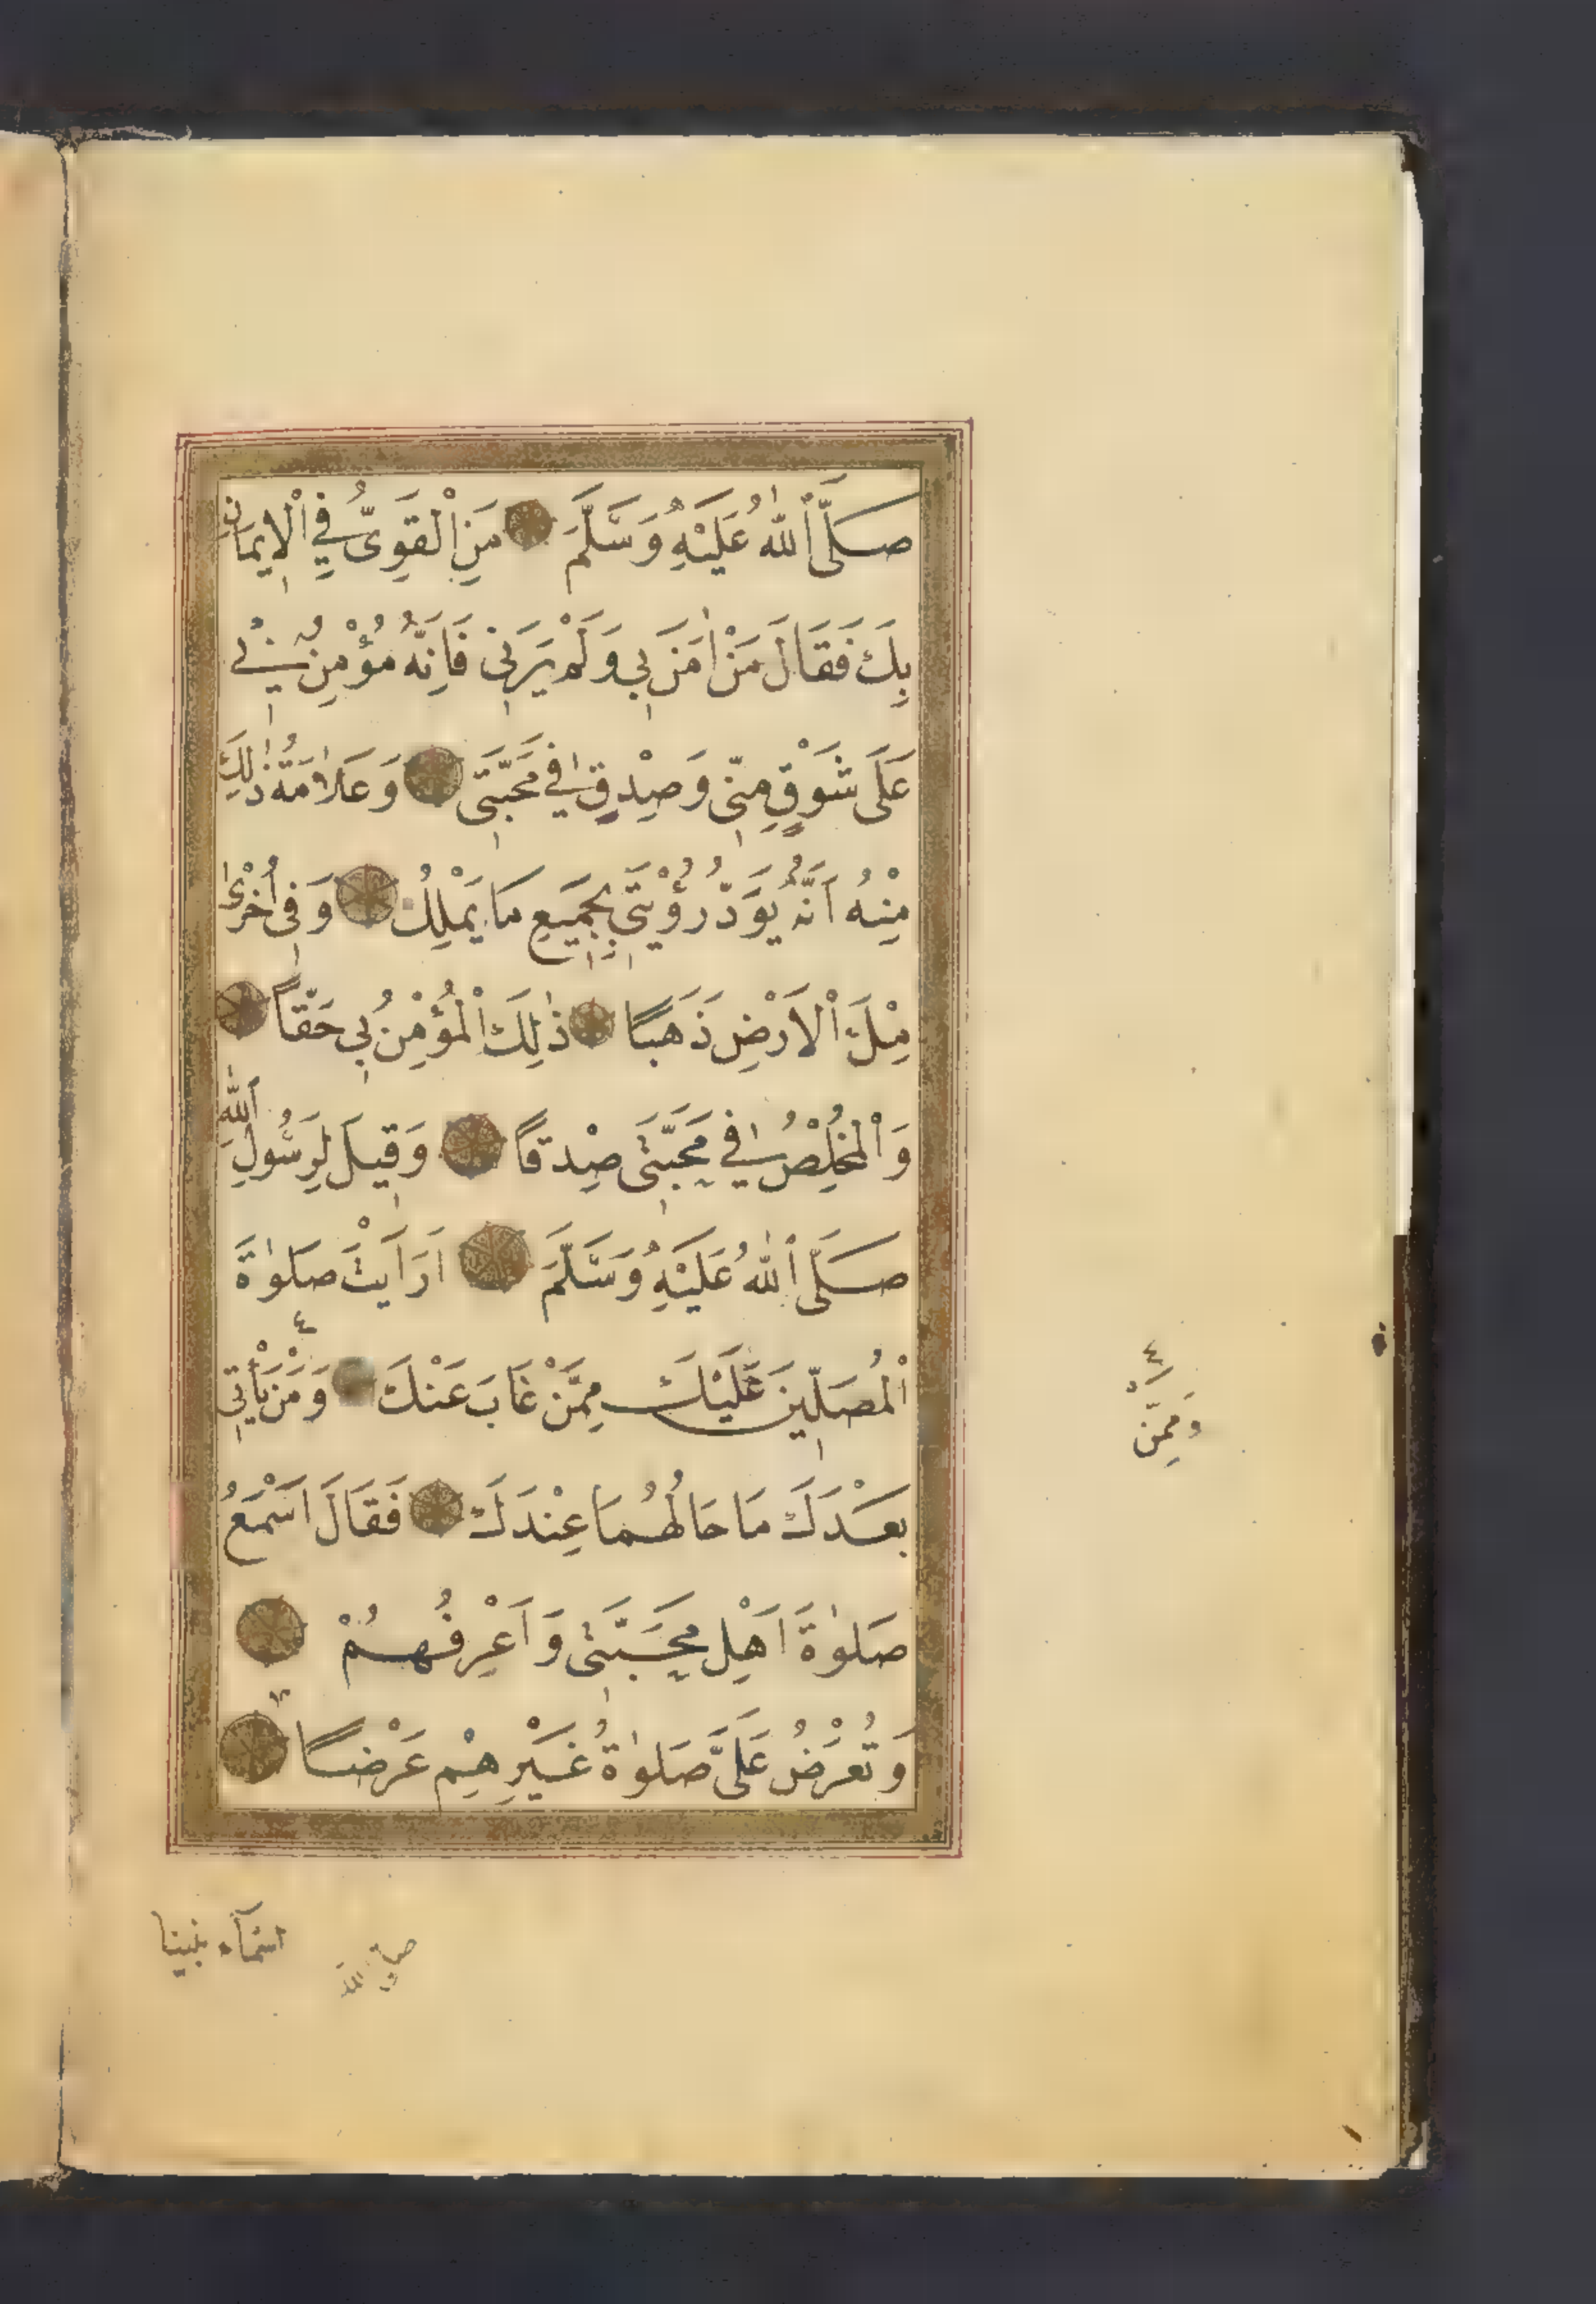 صَلَّى ٱللّٰهُ عَلَيْهِ وَسَلَّمَ مَنِ ٱلْقَوِىُّ فِي ٱلْإِيمَانِ
بِكَ فَقَالَ مَنْ اٰمَنَ بِي وَلَمْ يَرَنِي فَاِنَّهُ مُؤْمِنٌ بِي
عَلَى شَوْقٍ مِنِّي وَصِدْقٍ فِي مَحَبَّتِي وَعَلَامَةُ ذٰلِكَ
مِنْهُ اَنَّهُ يَوَدُّ رُؤْيَتِي بِجَمِيعِ مَا يَمْلِكُ وَفِي اُخْرٰى
مِلْءَ ٱلْاَرْضِ ذَهَبًا ذٰلِكَ ٱلْمُؤْمِنُ بِي حَقًّا
وَٱلْمُخْلِصُ فِي مَحَبَّتِي صِدْقًا وَقِيلَ لِرَسُولِ ٱللّٰهِ
صَلَّى ٱللّٰهُ عَلَيْهِ وَسَلَّمَ اَرَاَيْتَ صَلٰوةَ
ٱلْمُصَلِّينَ عَلَيْكَ مِمَّنْ غَابَ عَنْكَ وَمَنْ يَأْتِي
بَعْدَكَ مَا حَالُهُمَا عِنْدَكَ فَقَالَ اَسْمَعُ
صَلٰوةَ اَهْلِ مَحَبَّتِي وَاَعْرِفُهُمْ
وَتُعْرَضُ عَلَىَّ صَلٰوةُ غَيْرِهِمْ عَرْضًا
٤
وَمِمَّنْ
اسْمَآء نبينا
صلى الله